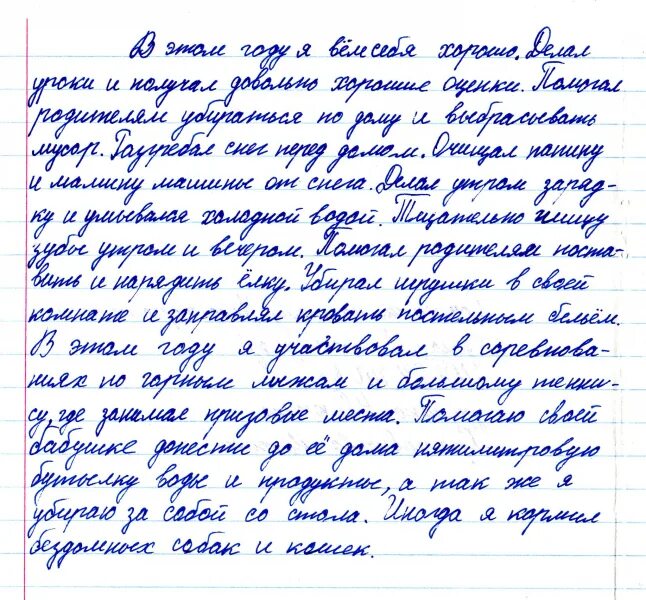 В этом году я вёл себя хорошо. Делал
уроки и получал довольно хорошие оценки. Помогал
родителям убираться по дому и выбрасывать
мусор. Разгребал снег перед домом. Очищал папину
и мамину машины от снега. Делал утром заряд-
ку и умывался холодной водой. Тщательно чищу
зубы утром и вечером. Помогал родителям поста-
вить и нарядить ёлку. Убирал игрушки в своей
комнате и заправлял кровать постельным бельём.
В этом году я участвовал в соревнова-
ниях по горным лыжам и большому тенни-
су, где занимал призовые места. Помогаю своей
бабушке донести до её дома пятилитровую
бутылку воды и продукты, а так же я
убираю за собой со стола. Иногда я кормил
бездомных собак и кошек.